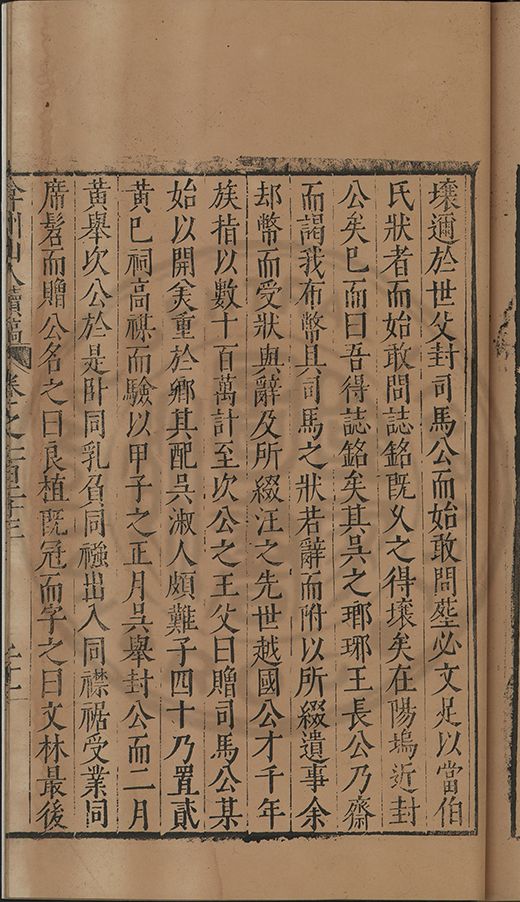 壤邇於世父封司馬公而始敢問塟必文足以當伯
氏狀者而始敢問誌銘既乆之得壤矣在陽塢近封
公矣已而曰吾得誌銘矣其吳之瑘琊王長公乃齋
而謁我布幣具司馬之狀若辭而附以所綴遺事余
却幣而受狀與辭及所綴汪之先世越國公才千年
族指以數十百萬計至次公之王父曰贈司馬公某
始以開矦重於鄉其配吳淑人頗難子四十乃置貳
黃巳祠高禖而驗以甲子之正月吳舉封公而二月
黃舉次公於是卧同乳負同襁出入同襟裾受業同
席髫而贈公名之曰良植既冠而字之曰文林最後
弇州山人續稿 卷之一百二十三 二十一